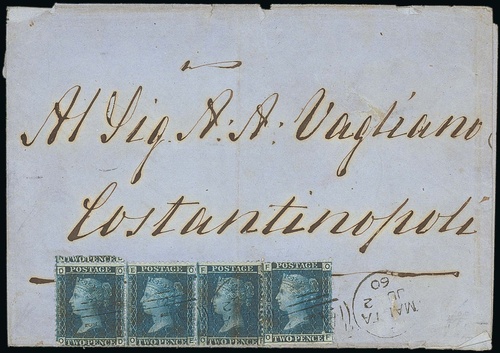 Al Sig. A. A. Vagliano
Costantinopoli
TWO PENCE
POSTAGE POSTAGE POSTAGE POSTAGE
TWO PENCE TWO PENCE TWO PENCE TWO PENCE
MALTA
2
JL
60